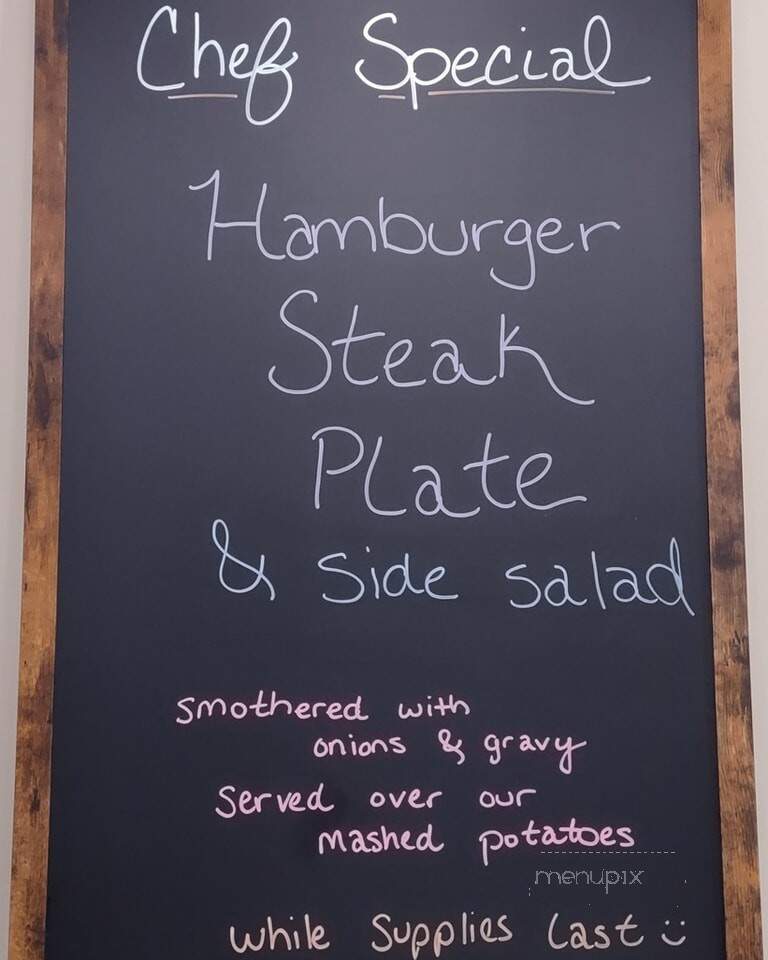 Chef Special
Hamburger
Steak
Plate
& Side salad
smothered with
onions & gravy
Served over our
mashed potatoes
menupix
while Supplies Last :)